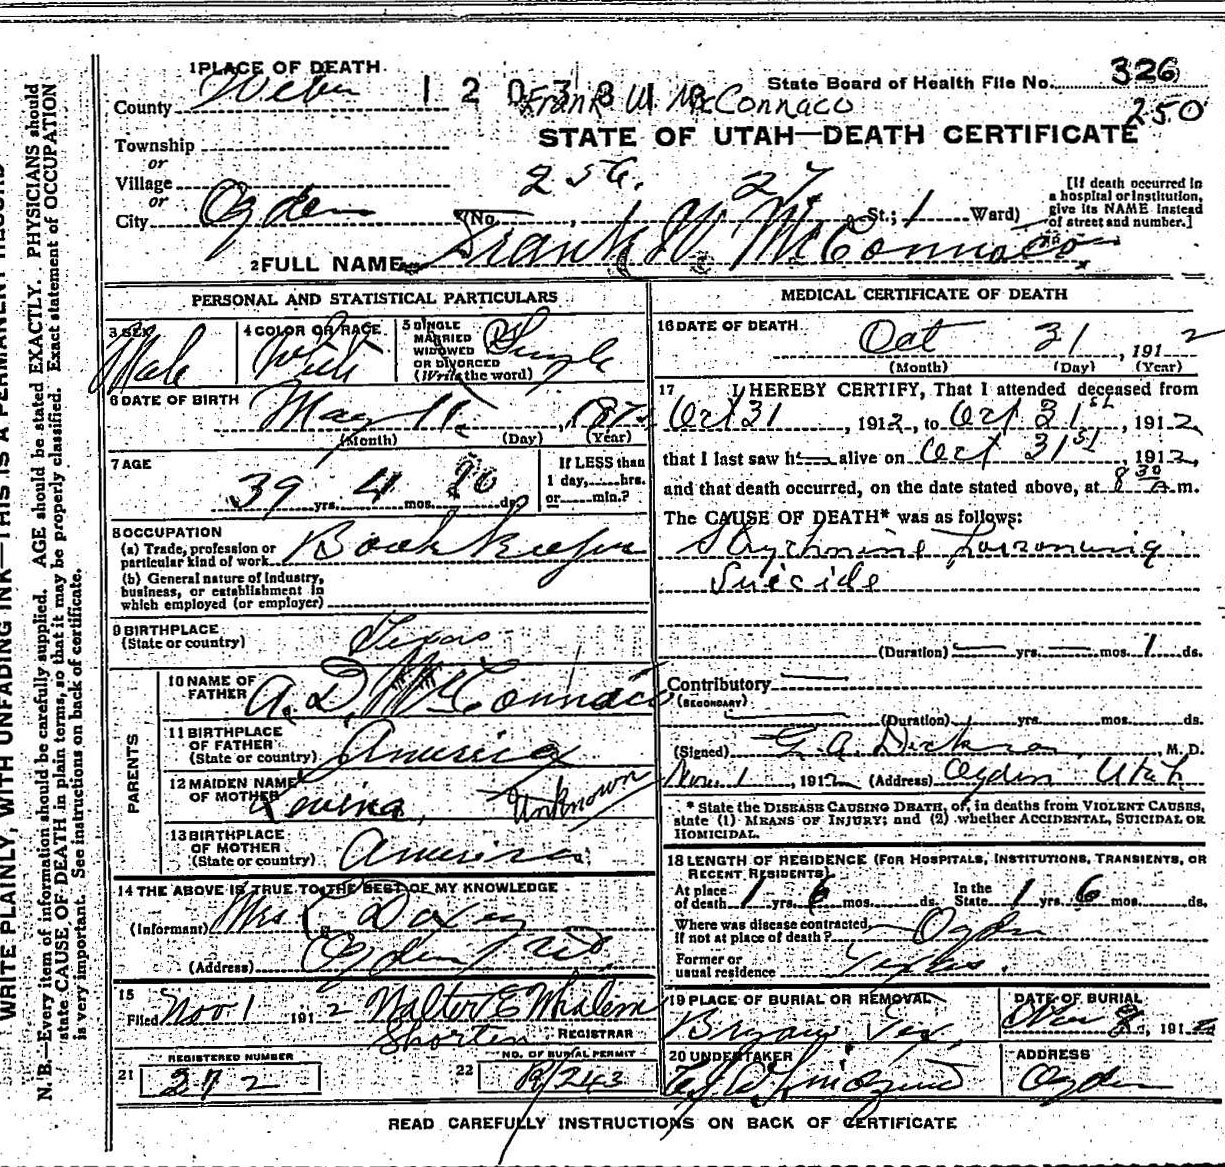 WRITE PLAINLY, WITH UNFADING INK—THIS IS A PERMANENT RECORD
N. B.—Every item of information should be carefully supplied. AGE should be stated EXACTLY. PHYSICIANS should
state CAUSE OF DEATH in plain terms, so that it may be properly classified. Exact statement of OCCUPATION
is very important. See instructions on back of certificate.
1 PLACE OF DEATH
State Board of Health File No. 326
County Weber
Frank W McConnaco
250
STATE OF UTAH—DEATH CERTIFICATE
Township
or
Village
or
City Ogden (No. , 25th. 27 St.; 1 Ward)
[If death occurred in
a hospital or institution,
give its NAME instead
of street and number.]
2 FULL NAME Frank W. McConnaco
PERSONAL AND STATISTICAL PARTICULARS
3 SEX Male
4 COLOR OR RACE White
5 SINGLE
MARRIED
WIDOWED
OR DIVORCED
(Write the word) Single
6 DATE OF BIRTH May 11, 187
(Month) (Day) (Year)
7 AGE 39 yrs. 4 mos. 20 ds.
If LESS than
1 day, hrs.
or min.?
8 OCCUPATION
(a) Trade, profession or
particular kind of work Book Keeper
(b) General nature of industry,
business, or establishment in
which employed (or employer)
9 BIRTHPLACE
(State or country) Texas
PARENTS
10 NAME OF
FATHER A. D. McConnaco
11 BIRTHPLACE
OF FATHER
(State or country) America
12 MAIDEN NAME
OF MOTHER Unknown
13 BIRTHPLACE
OF MOTHER
(State or country) America
14 THE ABOVE IS TRUE TO THE BEST OF MY KNOWLEDGE
(Informant) Mrs
(Address) Ogden
15
Filed Nov. 1 1912 Walter E Whalen
Shorten REGISTRAR
REGISTERED NUMBER
21 272
NO. OF BURIAL PERMIT
22 243
MEDICAL CERTIFICATE OF DEATH
16 DATE OF DEATH Oct 31, 1912
(Month) (Day) (Year)
17 I HEREBY CERTIFY, That I attended deceased from
Oct 31, 1912, to Oct 31st, 1912,
that I last saw h alive on Oct 31st, 1912,
and that death occurred, on the date stated above, at 8 30 A m.
The CAUSE OF DEATH* was as follows:
Strychnine Poisoning
Suicide
(Duration) yrs. mos. 1 ds.
Contributory
(SECONDARY)
(Duration) yrs. mos. ds.
(Signed) G. A. Dickson, M. D.
Nov. 1, 1912 (Address) Ogden Utah
* State the DISEASE CAUSING DEATH, or, in deaths from VIOLENT CAUSES,
state (1) MEANS OF INJURY; and (2) whether ACCIDENTAL, SUICIDAL OR
HOMICIDAL.
18 LENGTH OF RESIDENCE (FOR HOSPITALS, INSTITUTIONS, TRANSIENTS, OR
RECENT RESIDENTS)
At place
of death 1 yrs. 6 mos. ds. In the
State 1 yrs. 6 mos. ds.
Where was disease contracted,
if not at place of death? Ogden
Former or
usual residence Texas.
19 PLACE OF BURIAL OR REMOVAL
Bryan, Tex.
DATE OF BURIAL
Nov 191
20 UNDERTAKER
ADDRESS
Ogden
READ CAREFULLY INSTRUCTIONS ON BACK OF CERTIFICATE